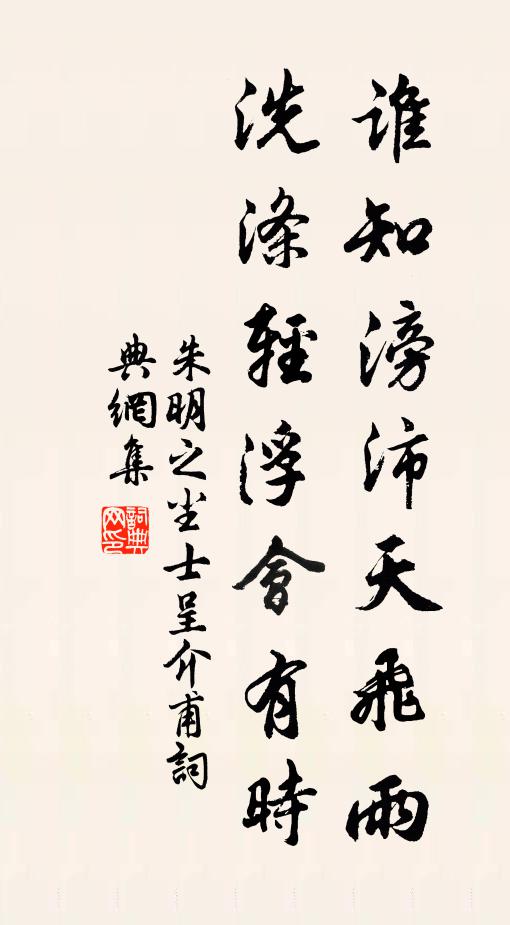 誰知滂沛天飛雨
洗滌輕浮會有時
朱明之尘士呈介甫詞
典網集
詞典网印